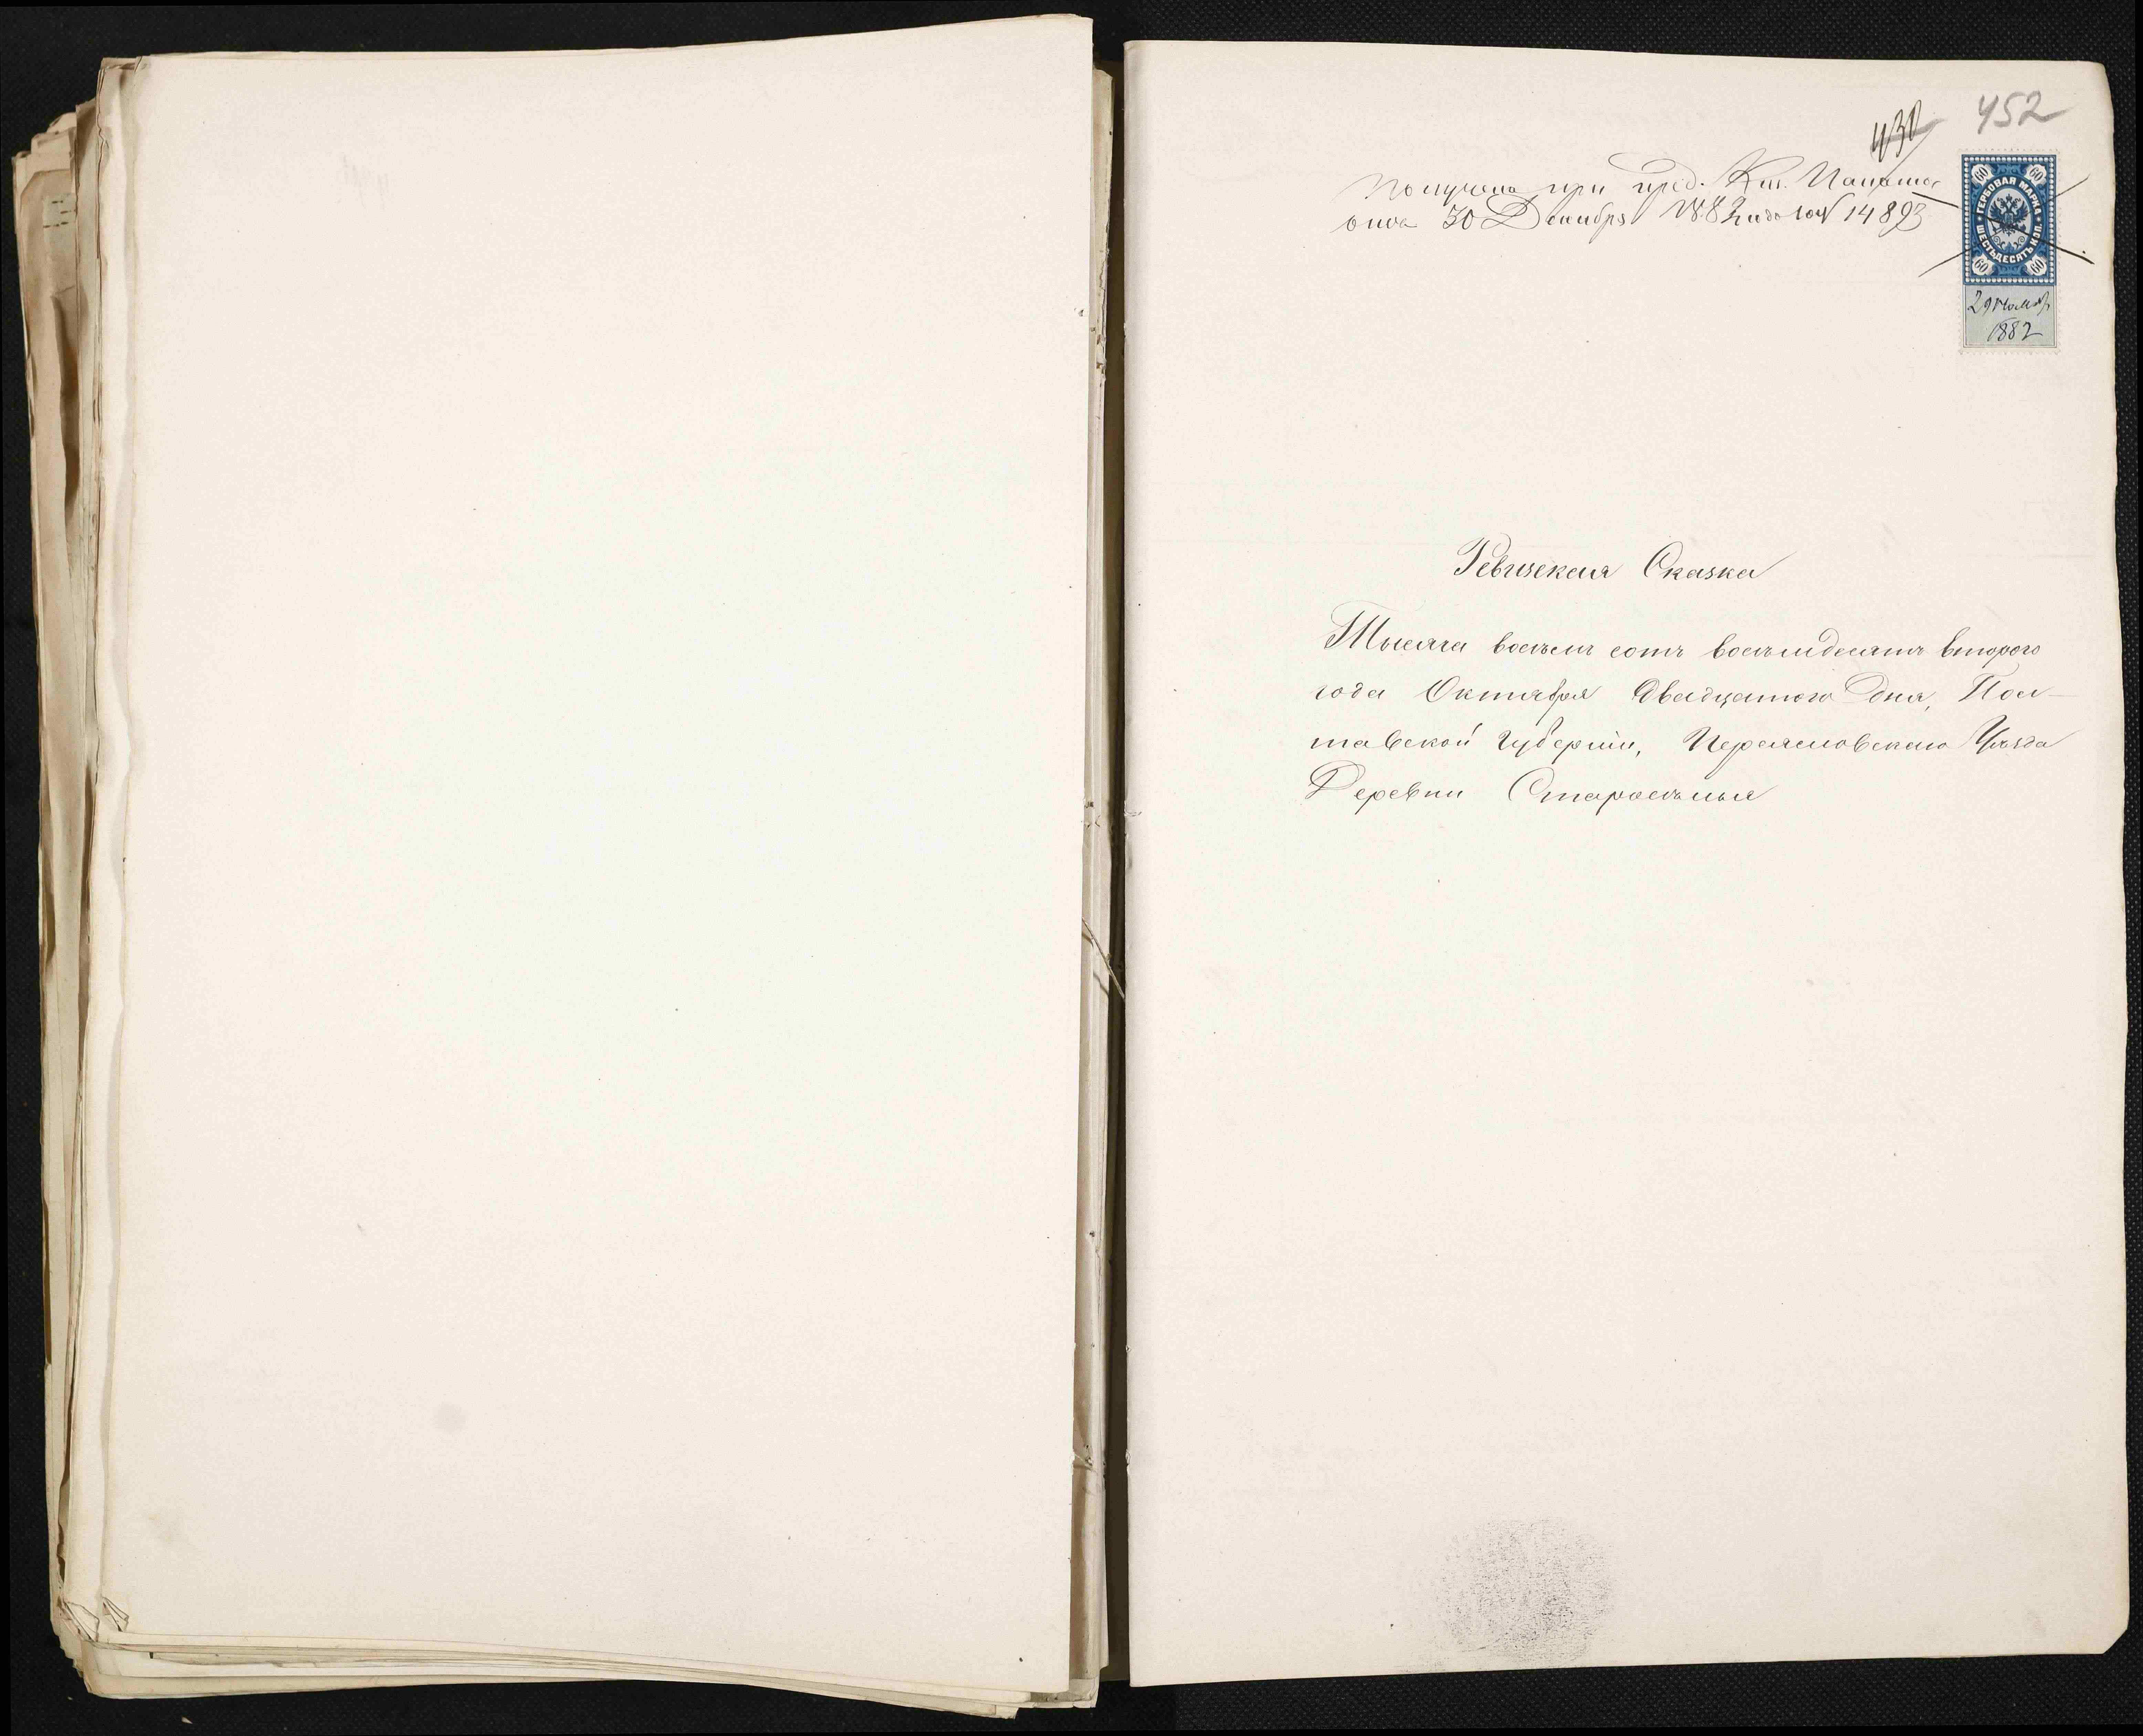 452
430
Получена при пред. Каз. Палаты
отъ 30 Декабря 1882 года за № 14893
60 60
ГЕРБОВАЯ МАРКА
ШЕСТЬДЕСЯТЪ КОП.
60 60
29 Ноябр
1882
Ревизская Сказка
Тысяча восемь сотъ восемьдесятъ второго
года Октября двадцатого дня, Пол-
тавской Губерніи, Переяславскаго Уѣзда
Деревни Староселья